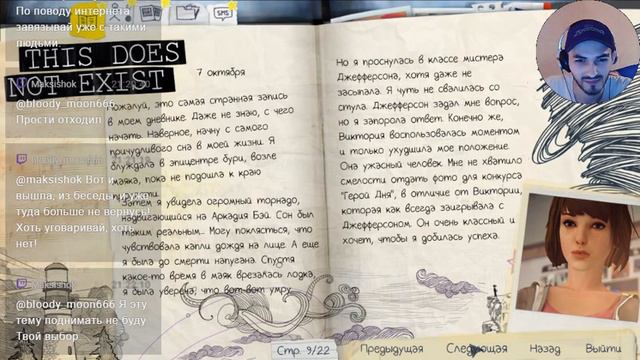 По поводу интернета
завязывай уже с такими
людьми.
SMS
THIS DOES
NOT EXIST
7 октября
Пожалуй, это самая странная запись
в моем дневнике. Даже не знаю, с чего
начать. Наверное, начну с самого
причудливого сна в моей жизни. Я
блуждала в эпицентре бури, возле
маяка, пока не подошла к краю
Затем я увидела огромный торнадо,
надвигающийся на Аркадия Бэй. Сон был
таким реальным... Могу поклясться, что
чувствовала капли дождя на лице. А еще
я была до смерти напугана. Спустя
какое-то время в маяк врезалась лодка,
я была уверена, что вот-вот умру.
Maksishok
@bloody_moon666
Прости отходил
bloody_moon666
@maksishok Вот и
вышла, из беседы, и уже
туда больше не вернусь!
Хоть уговаривай, хоть
нет!
Maksishok
@bloody_moon666 Я эту
тему поднимать не буду
Твой выбор
Но я проснулась в классе мистера
Джефферсона, хотя даже не
засыпала. Я чуть не свалилась со
стула. Джефферсон задал мне вопрос,
но я запорола ответ. Конечно же,
Виктория воспользовалась моментом
и только ухудшила мое положение.
Она ужасный человек. Мне не хватило
смелости отдать фото для конкурса
"Герой Дня", в отличие от Виктории,
которая как всегда заигрывала с
Джефферсоном. Он очень классный и
хочет, чтобы я добилась успеха.
Стр. 9/22
Предыдущая
Следующая
Назад
Выйти